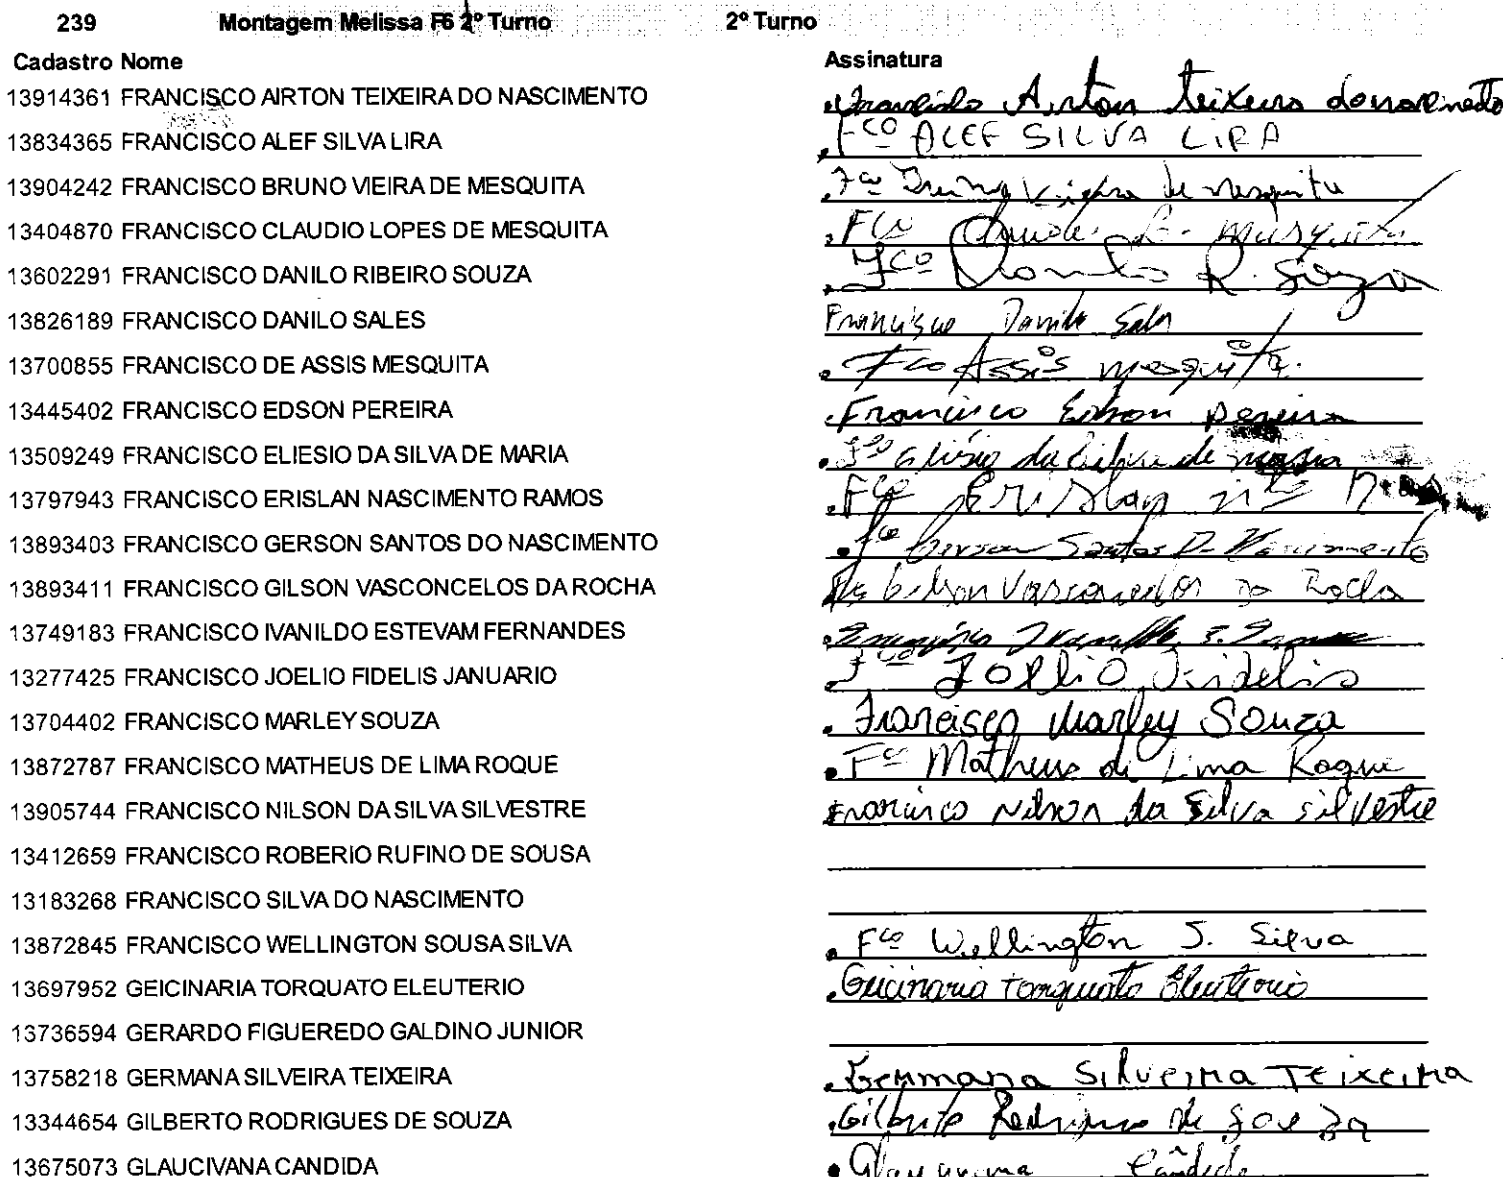 239 Montagem Melissa F6 2º Turno 2º Turno
Cadastro Nome Assinatura
13914361 FRANCISCO AIRTON TEIXEIRA DO NASCIMENTO Airton Teixeira do nascimento
13834365 FRANCISCO ALEF SILVA LIRA Fco ALEF SILVA LIRA
13904242 FRANCISCO BRUNO VIEIRA DE MESQUITA Fco Bruno Vieira de mesquita
13404870 FRANCISCO CLAUDIO LOPES DE MESQUITA Fco Claudio L. Mesquita
13602291 FRANCISCO DANILO RIBEIRO SOUZA Fco Danilo R. Souza
13826189 FRANCISCO DANILO SALES Francisco Danilo Sales
13700855 FRANCISCO DE ASSIS MESQUITA Fco Assis mesquita
13445402 FRANCISCO EDSON PEREIRA Francisco Edson pereira
13509249 FRANCISCO ELIESIO DA SILVA DE MARIA Fco Eliésio da Silva de maria
13797943 FRANCISCO ERISLAN NASCIMENTO RAMOS Fco Erislan
13893403 FRANCISCO GERSON SANTOS DO NASCIMENTO Fco Gerson Santos D. Nascimento
13893411 FRANCISCO GILSON VASCONCELOS DA ROCHA Gilson Vasconcelos da Rocha
13749183 FRANCISCO IVANILDO ESTEVAM FERNANDES Francisco Ivanildo E.
13277425 FRANCISCO JOELIO FIDELIS JANUARIO Fco Joélio Fidelis
13704402 FRANCISCO MARLEY SOUZA Francisco Marley Souza
13872787 FRANCISCO MATHEUS DE LIMA ROQUE Fco Matheus de Lima Roque
13905744 FRANCISCO NILSON DA SILVA SILVESTRE Francisco Nilson da Silva silvestre
13412659 FRANCISCO ROBERIO RUFINO DE SOUSA
13183268 FRANCISCO SILVA DO NASCIMENTO
13872845 FRANCISCO WELLINGTON SOUSA SILVA Fco Wellington S. Silva
13697952 GEICINARIA TORQUATO ELEUTERIO Geicinaria torquato Eleuterio
13736594 GERARDO FIGUEREDO GALDINO JUNIOR
13758218 GERMANA SILVEIRA TEIXEIRA Germana Silveira Teixeira
13344654 GILBERTO RODRIGUES DE SOUZA Gilberto Rodrigues de Souza
13675073 GLAUCIVANA CANDIDA Glaucivana Cândida